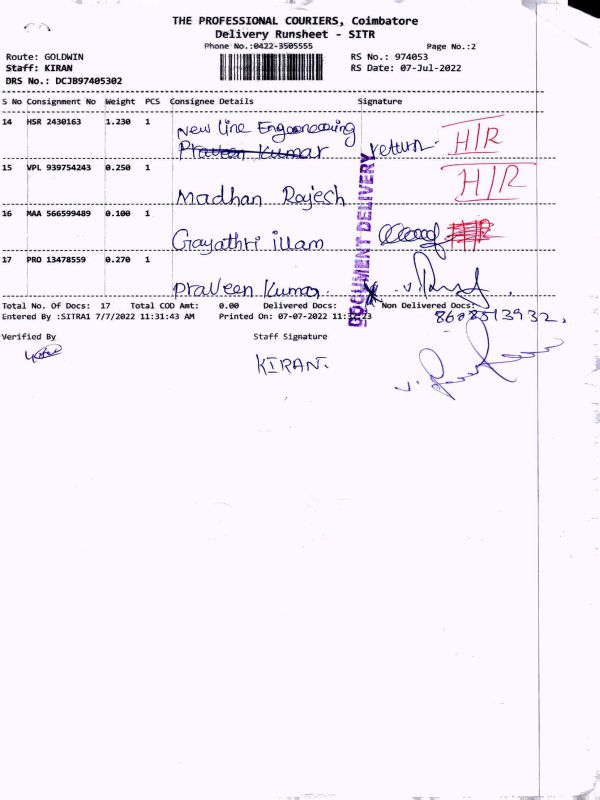 THE PROFESSIONAL COURIERS, Coimbatore
Delivery Runsheet - SITR
Phone No.:0422-3505555 Page No.:2
Route: GOLDWIN RS No.: 974053
Staff: KIRAN RS Date: 07-Jul-2022
DRS No.: DCJB97405302
S No Consignment No Weight PCS Consignee Details Signature
14 HSR 2430163 1.230 1 New Line Engeeneering
Praveen Kumar return. H/R
15 VPL 939754243 0.250 1 H/R
Madhan Rajesh
16 MAA 566599489 0.100 1
Gayathri illam
17 PRO 13478559 0.270 1
Praveen Kumar.
DOCUMENT DELIVERY
Total No. Of Docs: 17 Total COD Amt: 0.00 Delivered Docs: Non Delivered Docs:
8608513932,
Entered By :SITRA1 7/7/2022 11:31:43 AM Printed On: 07-07-2022
Verified By Staff Signature
KIRAN.